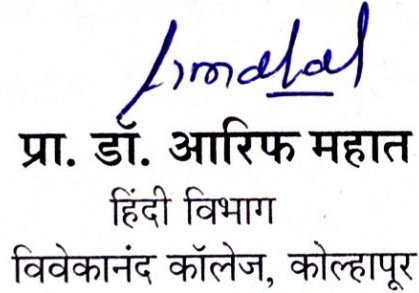 प्रा. डॉ. आरिफ महात
हिंदी विभाग
विवेकानंद कॉलेज, कोल्हापूर